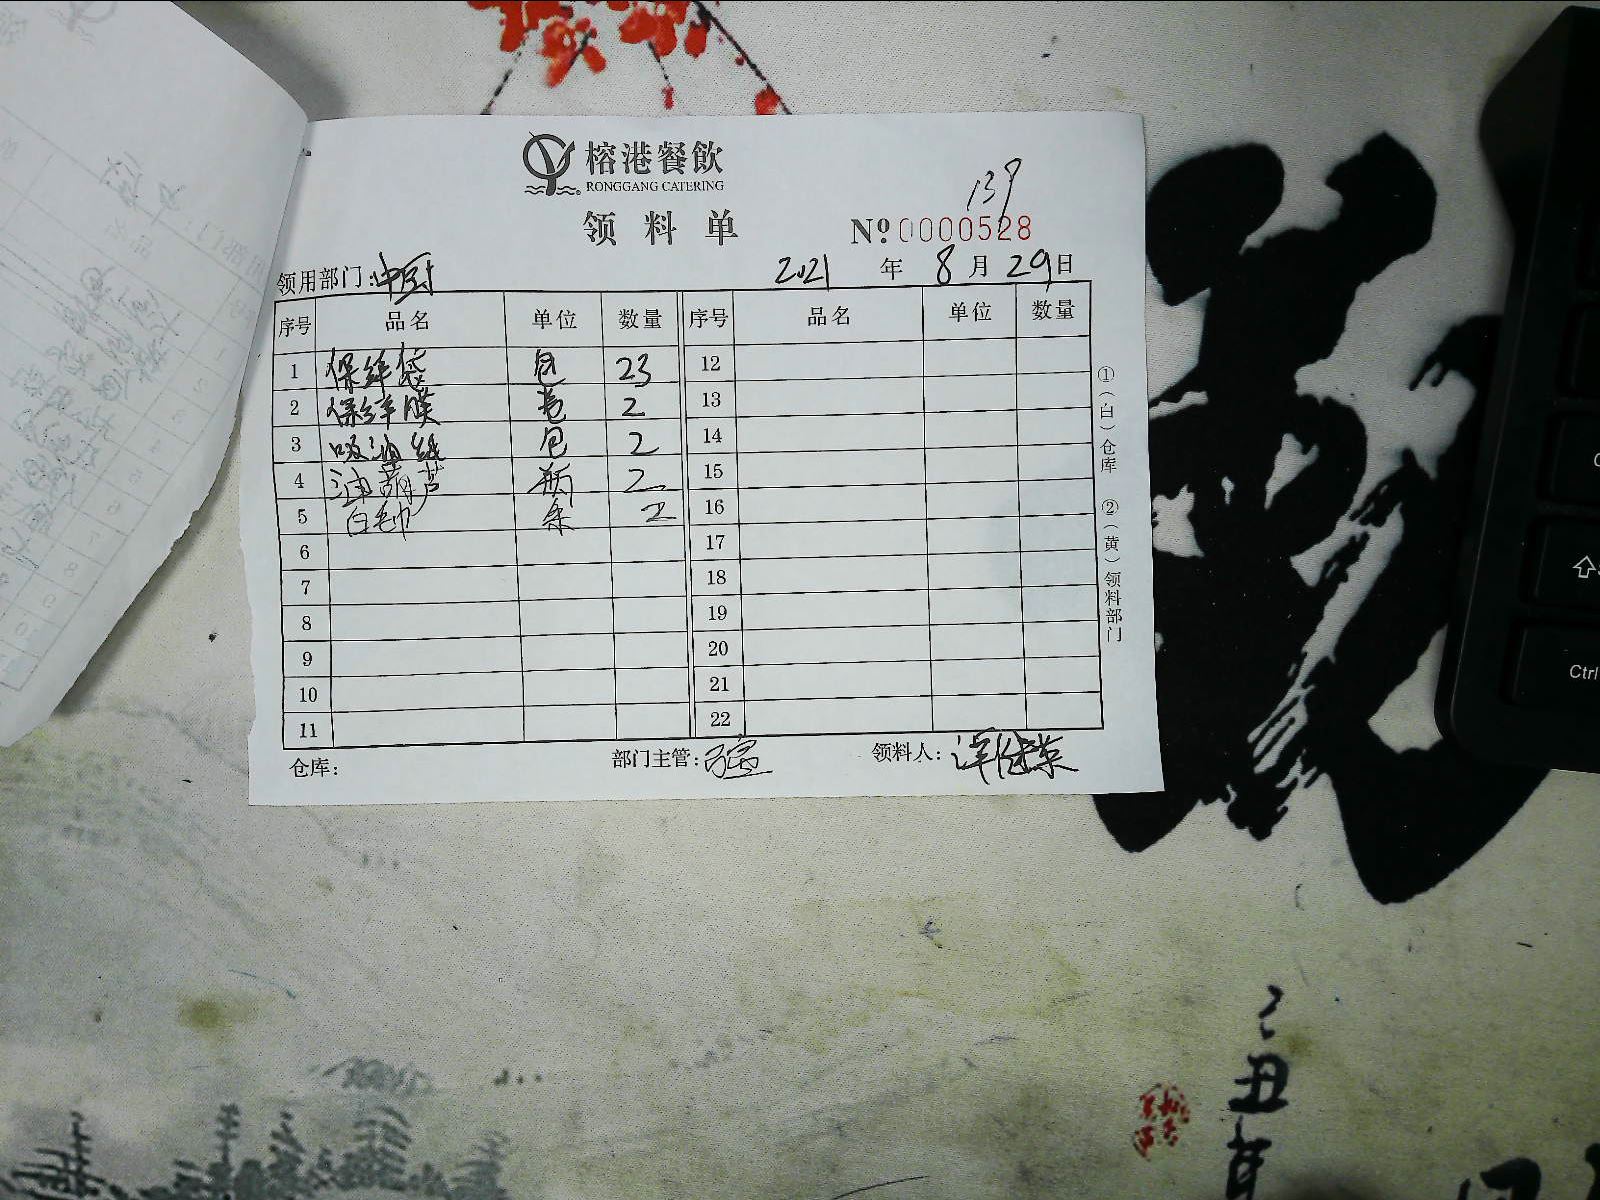 榕港餐飲
RONGGANG CATERING
139
领料单 №0000528
领用部门:中厨 2021 年 8 月 29 日
序号 品名 单位 数量 序号 品名 单位 数量
1 保鲜袋 包 23 12
2 保鲜膜 卷 2 13
3 吸油纸 包 2 14
4 油葫芦 瓶 2 15
5 白毛巾 条 2 16
6 17
7 18
8 19
9 20
10 21
11 22
仓库: 部门主管: 领料人:
①(白)仓库 ②(黄)领料部门
Ctrl
丑